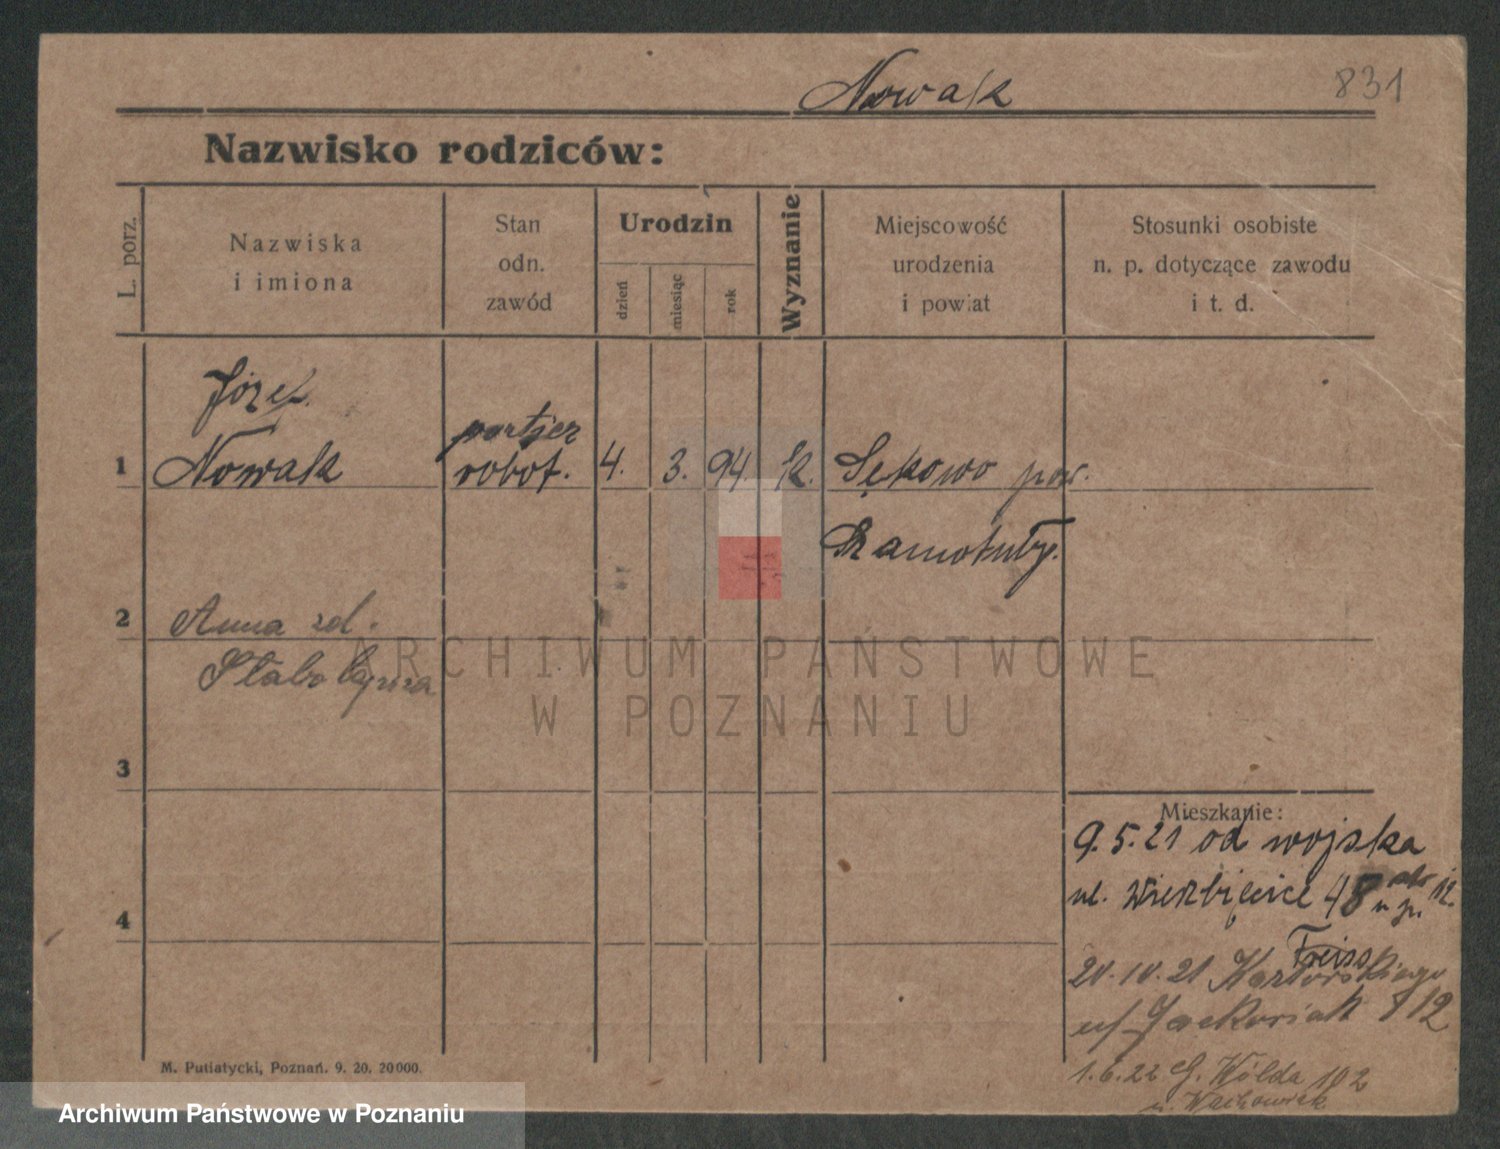 Nowak
831
Nazwisko rodziców:
L. porz.
Nazwiska
i imiona
Stan
odn.
zawód
Urodzin
dzień
miesiąc
rok
Wyznanie
Miejscowość
urodzenia
i powiat
Stosunki osobiste
n. p. dotyczące zawodu
i t. d.
Józef
portjer
1 Nowak robot. 4. 3. 94. K. Sękowo pow.
Szamotuły.
2 Anna zd.
3
Mieszkanie:
9.5.21 od wojska
ul. Wierzbięcice 48 12.
4
Freiss
21
8 12
1.6.22 G. Wilda 102
u. Wachowiak
M. Putiatycki, Poznań. 9. 20. 20000.
ARCHIWUM PAŃSTWOWE
W POZNANIU
Archiwum Państwowe w Poznaniu